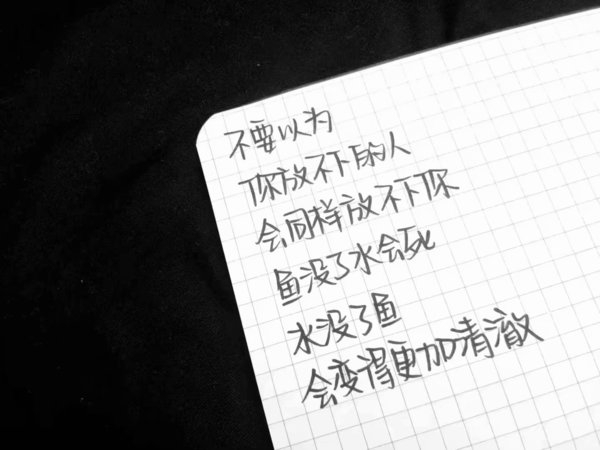 不要以为
你放不下的人
会同样放不下你
鱼没了水会死
水没了鱼
会变得更加清澈